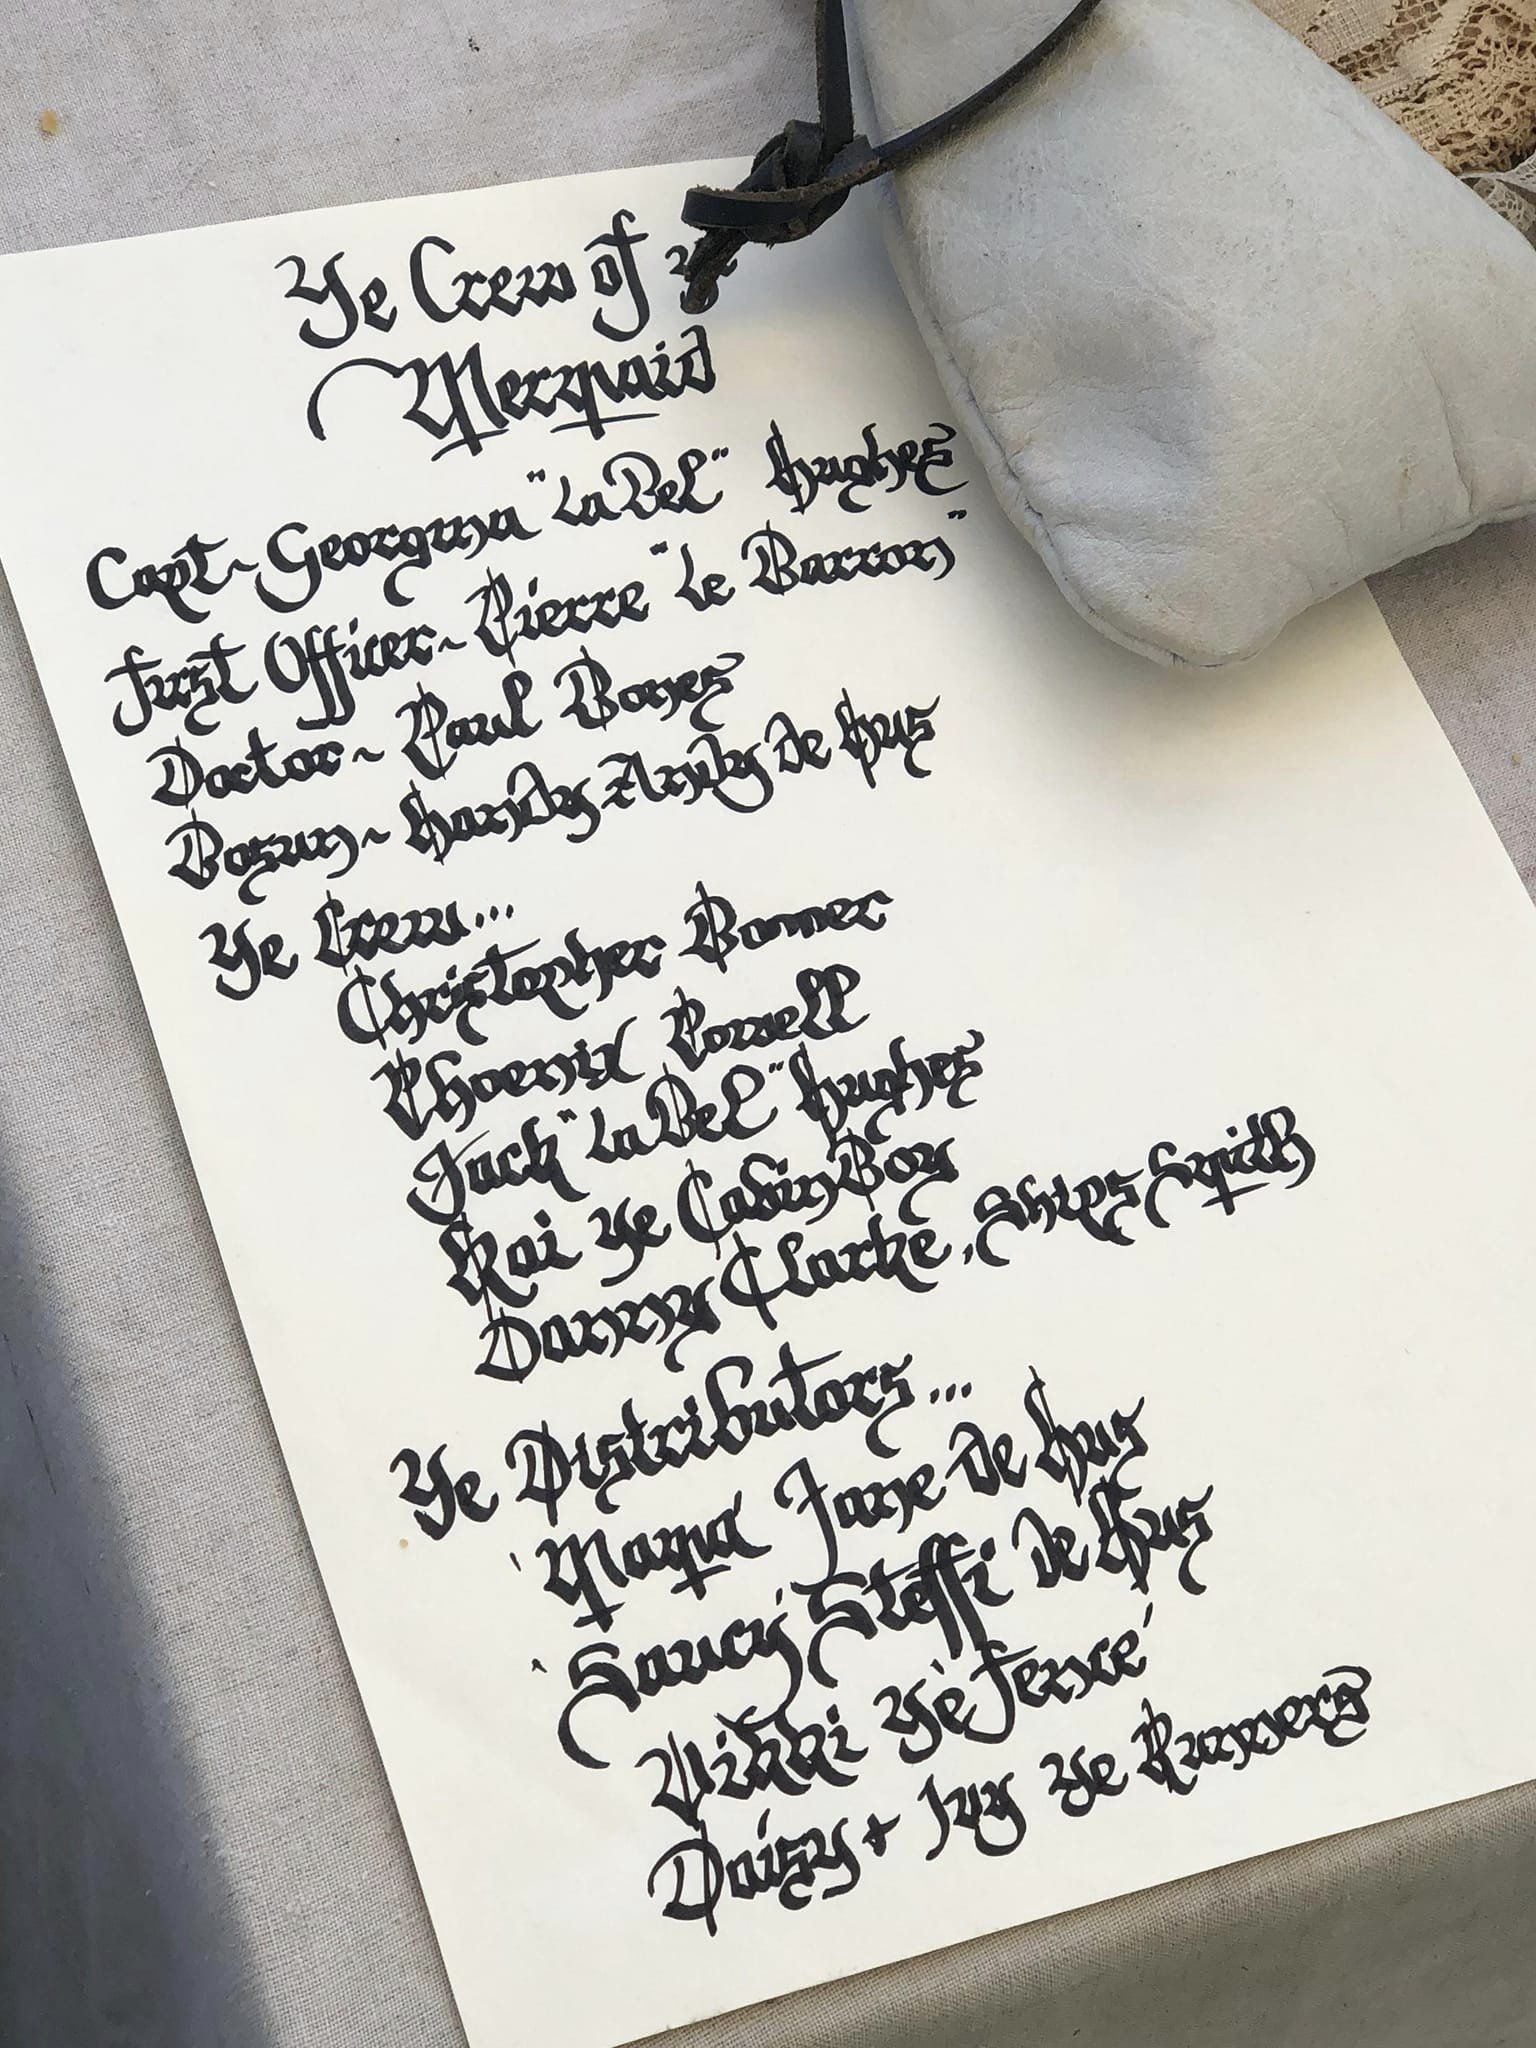 Ye Crew of ye
Mermaid
Capt~ Georgina "La Bel" Hughes
First Officer~ Pierre "Le Barron"
Doctor~ Paul Bones
Bosun~ Handy Andy de Hus
Ye Crew...
Christopher Bonner
Phoenix Powell
Jack "La Bel" Hughes
Kai ye Cabin Boy
Danny Clarke, Ships Smith
Ye Distributors...
'Mama' Jane de Hus
'Saucy' Steffi de Hus
Vikki 'Ye Fence'
Daisy + Ivy Ye Runners